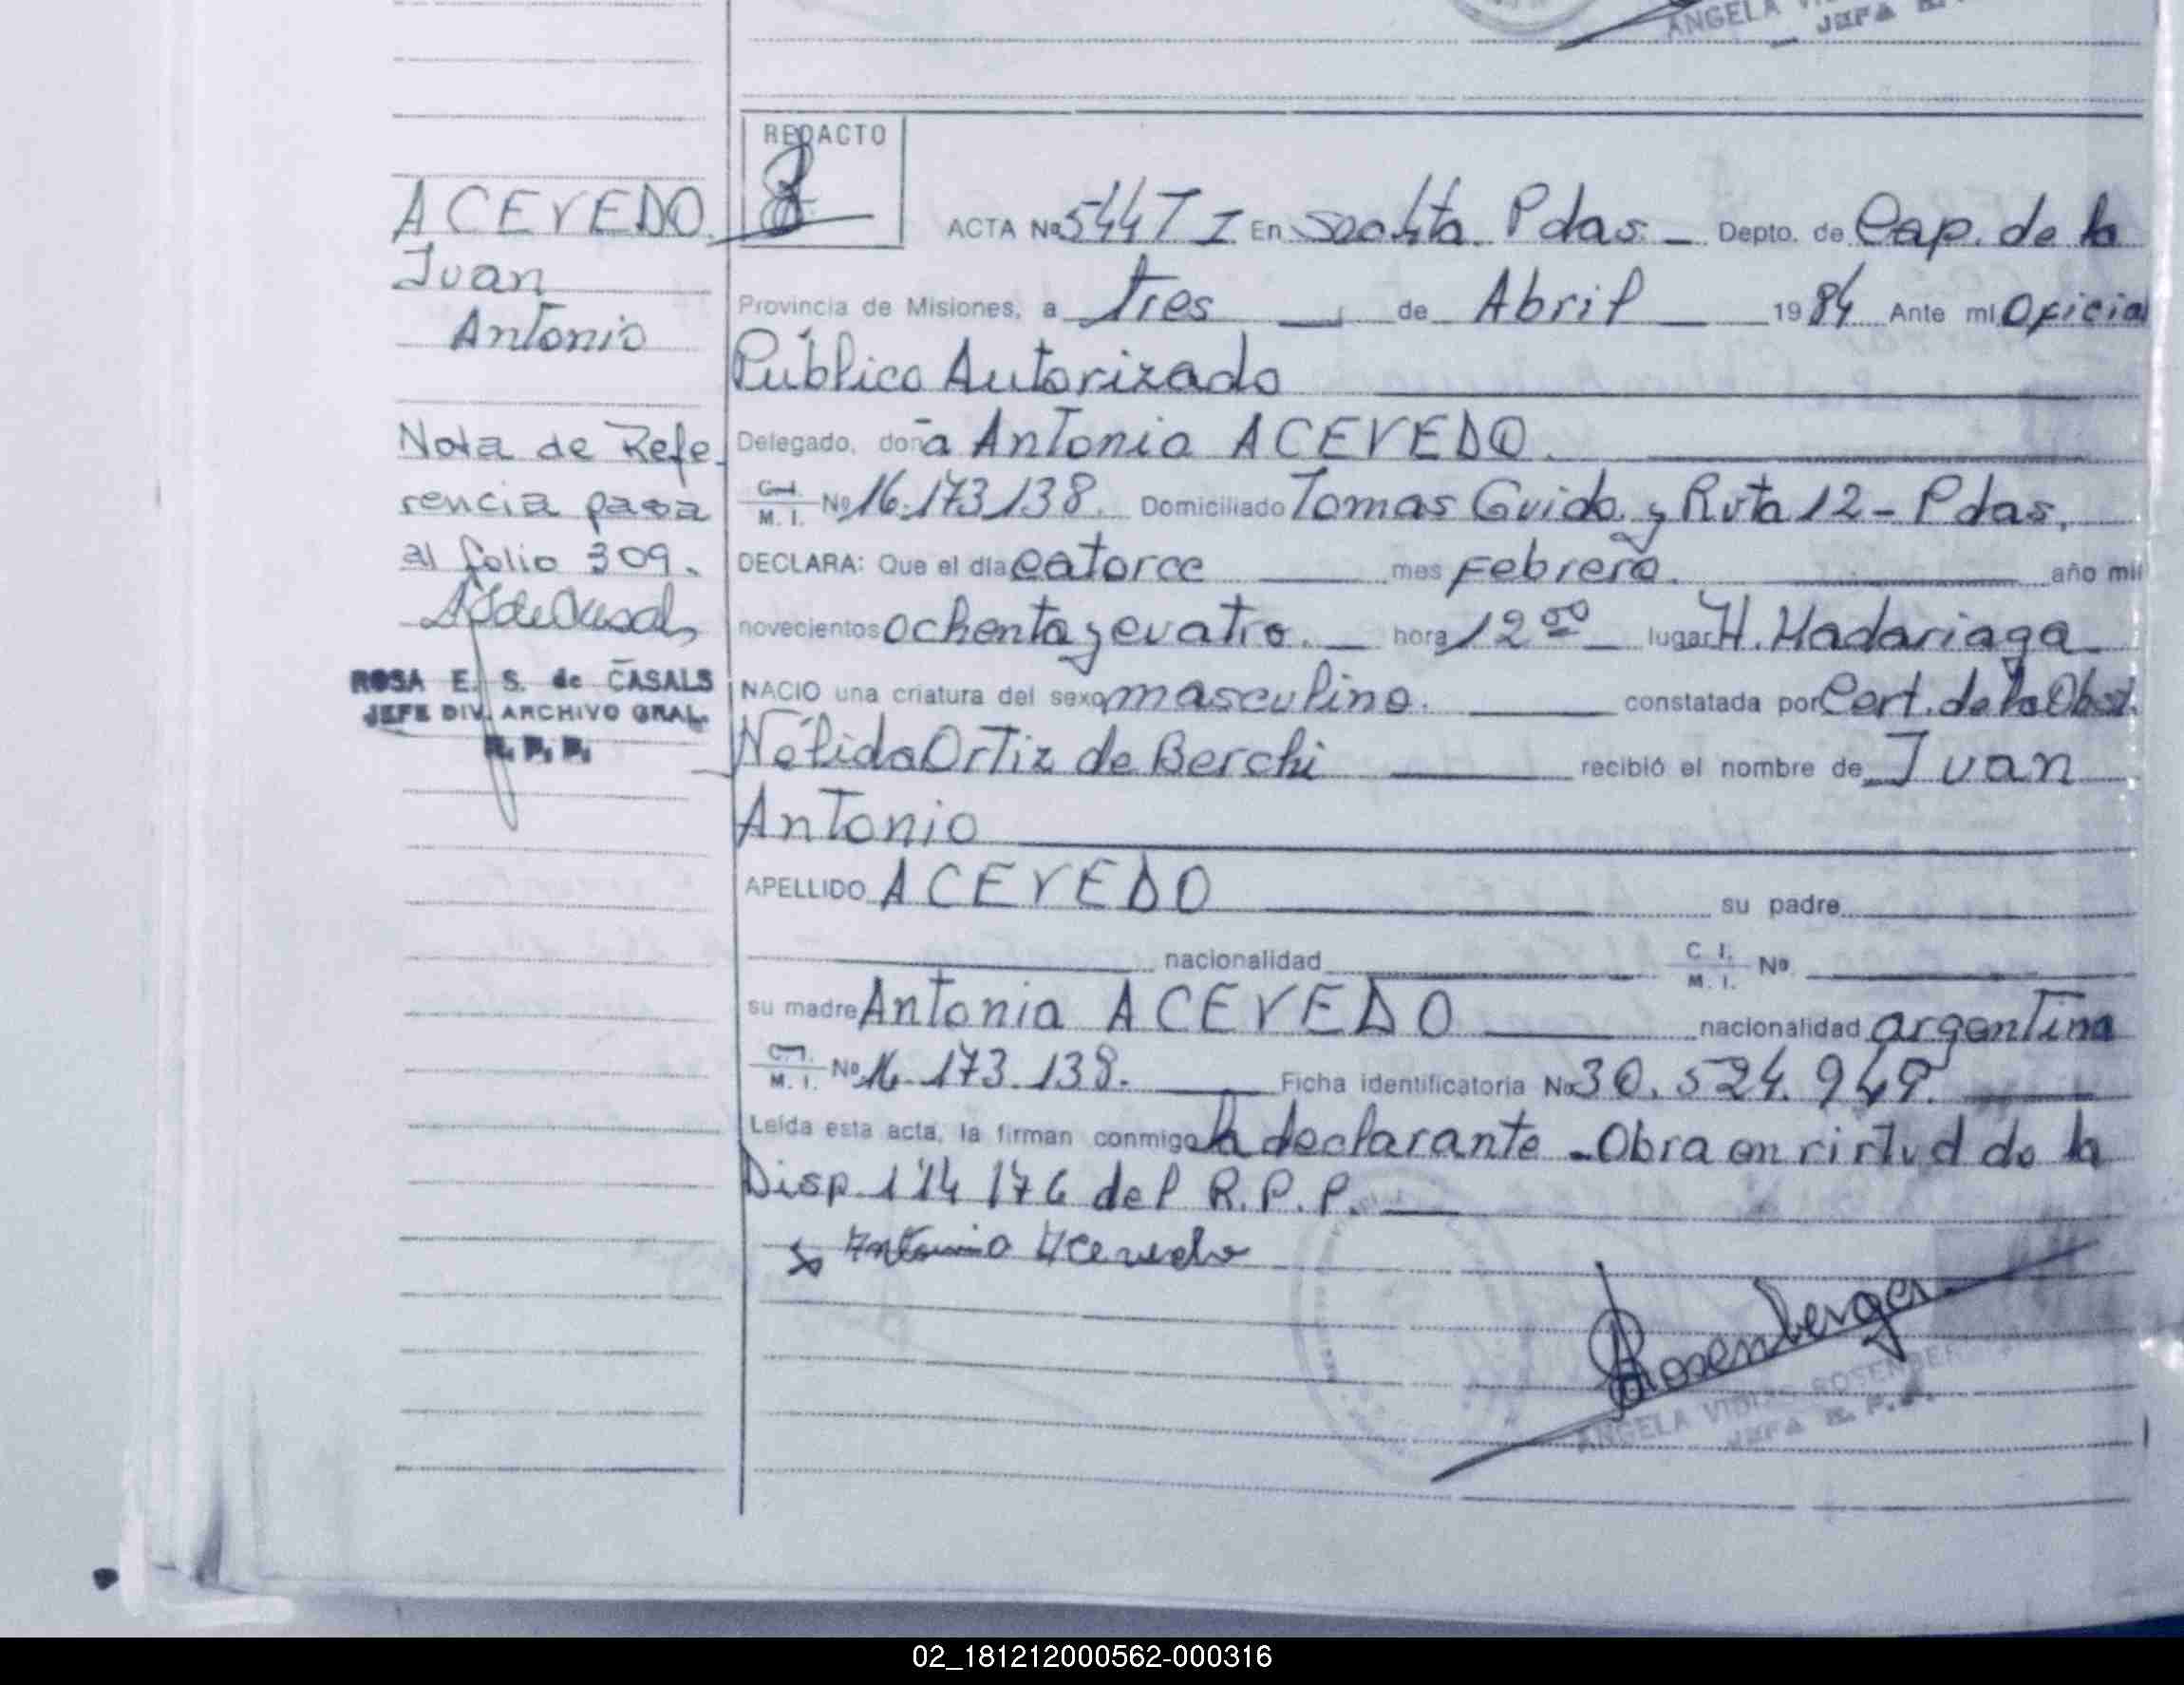 ANGELA
JEFA
REDACTO
ACEVEDO
Juan
Antonio
Nota de Refe-
rencia pasa
al folio 309.
ROSA E. S. de CASALS
JEFE DIV. ARCHIVO GRAL.
R. P. P.
ACTA Nº 544 T I En Pdas. Depto. de Cap. de la
Provincia de Misiones, a tres de Abril 1984 Ante mi Oficial
Público Autorizado
Delegado, doña Antonia ACEVEDO.
C. I. M. I. Nº 16.173.138. Domiciliado Tomas Guido y Ruta 12 - Pdas.
DECLARA: Que el día catorce mes Febrero. año mil
novecientos ochenta y cuatro. hora 12 00 lugar H. Madariaga
NACIO una criatura del sexo masculino. constatada por Cert. de la Obst.
Nélida Ortiz de Berchi recibió el nombre de Juan
Antonio
APELLIDO ACEVEDO su padre
nacionalidad C. I. M. I. Nº
su madre Antonia ACEVEDO nacionalidad argentina
C. I. M. I. Nº 16.173.138. Ficha identificatoria Nº 30.524.949.
Leída esta acta, la firman conmigo la declarante - Obra en virtud de la
Disp. 114/76 del R.P.P.
Antonia Acevedo
Rosenberger
ANGELA ROSENBER
JEFA R. P. P.
02_181212000562-000316